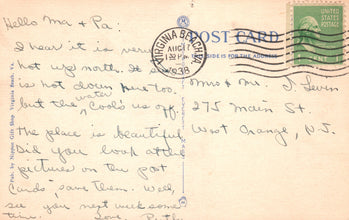 Hello Ma & Pa:
I hear it is very
hot up north. It is
is hot down here too,
but the water cools us off.
The place is beautiful
Did you look at the
pictures on the post
cards, save them. Well,
see you next week some
time. Love, Ruth
Pub. by Nippon Gift Shop, Virginia Beach, Va.
POST CARD
SIDE IS FOR THE ADDRESS
VIRGINIA BEACH
AUG 17
PM
1938
UNITED STATES POSTAGE
Mr. & Mrs. J. Levin
275 Main St.
West Orange, N.J.